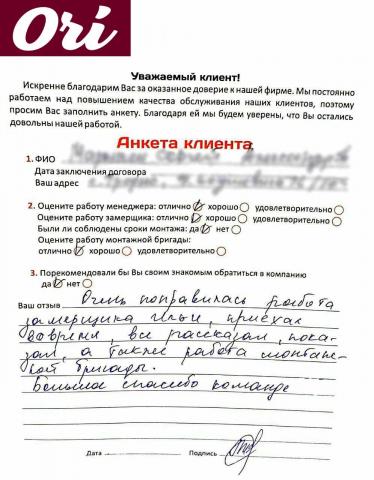 Ori
Уважаемый клиент!
Искренне благодарим Вас за оказанное доверие к нашей фирме. Мы постоянно
работаем над повышением качества обслуживания наших клиентов, поэтому
просим Вас заполнить анкету. Благодаря ей мы будем уверены, что Вы остались
довольны нашей работой.
Анкета клиента
1. ФИО
Дата заключения договора
Ваш адрес
2. Оцените работу менеджера: отлично хорошо удовлетворительно
Оцените работу замерщика: отлично хорошо удовлетворительно
Были ли соблюдены сроки монтажа: да нет
Оцените работу монтажной бригады:
отлично хорошо удовлетворительно
3. Порекомендовали бы Вы своим знакомым обратиться в компанию
да нет
Ваш отзыв Очень понравилась работа
замерщика Ильи, приехал
вовремя, все рассказал, пока-
зал, а также работа монтаж-
ной бригады.
Большое спасибо команде
Дата Подпись